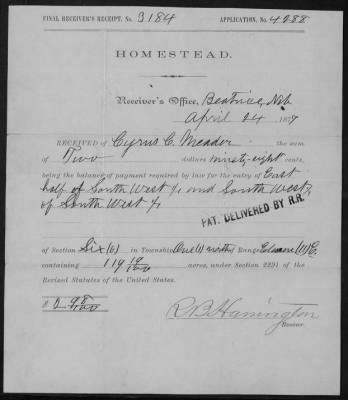 FINAL RECEIVER'S RECEIPT. No. 3184 APPLICATION, No. 4288
HOMESTEAD.
Receiver's Office, Beatrice, Neb
April 24 1879
RECEIVED of Cyrus C. Meador the sum
of Two dollars ninety-eight cents,
being the balance of payment required by law for the entry of East
half of South West ¼ and South West ¼
of South West ¼
PAT. DELIVERED BY R.R.
of Section Six (6) in Township One (1) north of Range Eleven (11) E.
containing 119 19/100 acres, under Section 2291 of the
Revised Statutes of the United States.
$ 2 98/100
R. B. Harrington
Receiver.